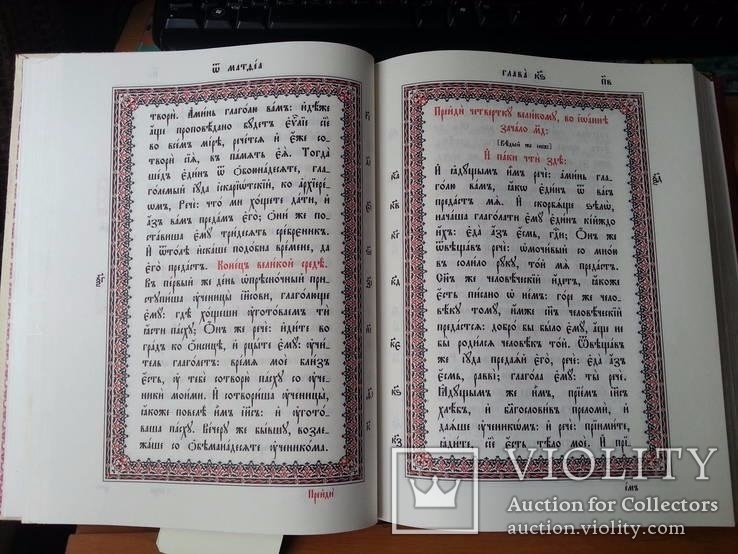 ѿ матѳеа
твори. Аминь глаголю вамъ: идѣже
аще проповѣдано будетъ еѵⷢ҇лїе сїе
во всемъ мїрѣ, речется и еже со-
твори сїя, въ память ея. Тогда
шедъ единъ ѿ обоюнадесяте, гла-
големый іуда іскарїѡтскїй, ко архїере-
ѡмъ, Рече: что ми хощете дати, и
азъ вамъ предамъ его; Они же по-
ставиша ему тридесять сребреникъ.
И ѿтолѣ искаше подобна времене, да
его предастъ. Конецъ великой средѣ.
Въ первый же день ѡпрѣсночный при-
ступиша ученицы іисови, глаголюще
ему: гдѣ хощеши уготоваемъ ти
ясти пасху; Онъ же рече: идите во
градъ ко онсицѣ, и рцыте ему: учи-
тель глаголетъ: время мое близъ
есть, у тебе сотворю пасху со уче-
ники моими. И сотвориша ученицы,
якоже повелѣ имъ іисъ: и угото-
ваша пасху. Вечеру же бывшу, возле-
жаше со обѣманадесяте ученикома.
Прейди
глава кѕ
пв
Прейди четвертку великому, во іѡаннѣ
зачало мд:
И паки чти здѣ:
И ядущымъ имъ рече: аминь гла-
голю вамъ, якѡ единъ ѿ васъ
предастъ мя. И скорбяще ѕѣлѡ,
начаша глаголати ему единъ кійждо
ихъ: еда азъ есмь, гди; Онъ же
ѿвѣщавъ рече: ѡмочивый со мною
въ солило руку, той мя предастъ.
Снъ же человѣческій идетъ, якоже
есть писано ѡ немъ: горе же чело-
вѣку тому, имже снъ человѣческій
предастся: добро бы было ему, аще не
бы родился человѣкъ той. Ѿвѣщавъ
же іуда предаяй его, рече: еда азъ
есмь, равви; глагола ему: ты рече.
Ядущымъ же имъ, прїемъ іисъ
хлѣбъ, и благословивъ преломи, и
даяше ученикомъ: и рече: прїимите,
ядите: сїе есть тѣло мое. И прї-
имъ
ка
кв
кг
кд
ке
кѕ
кз
VIOLITY
Auction for Collectors
auction.violity.com